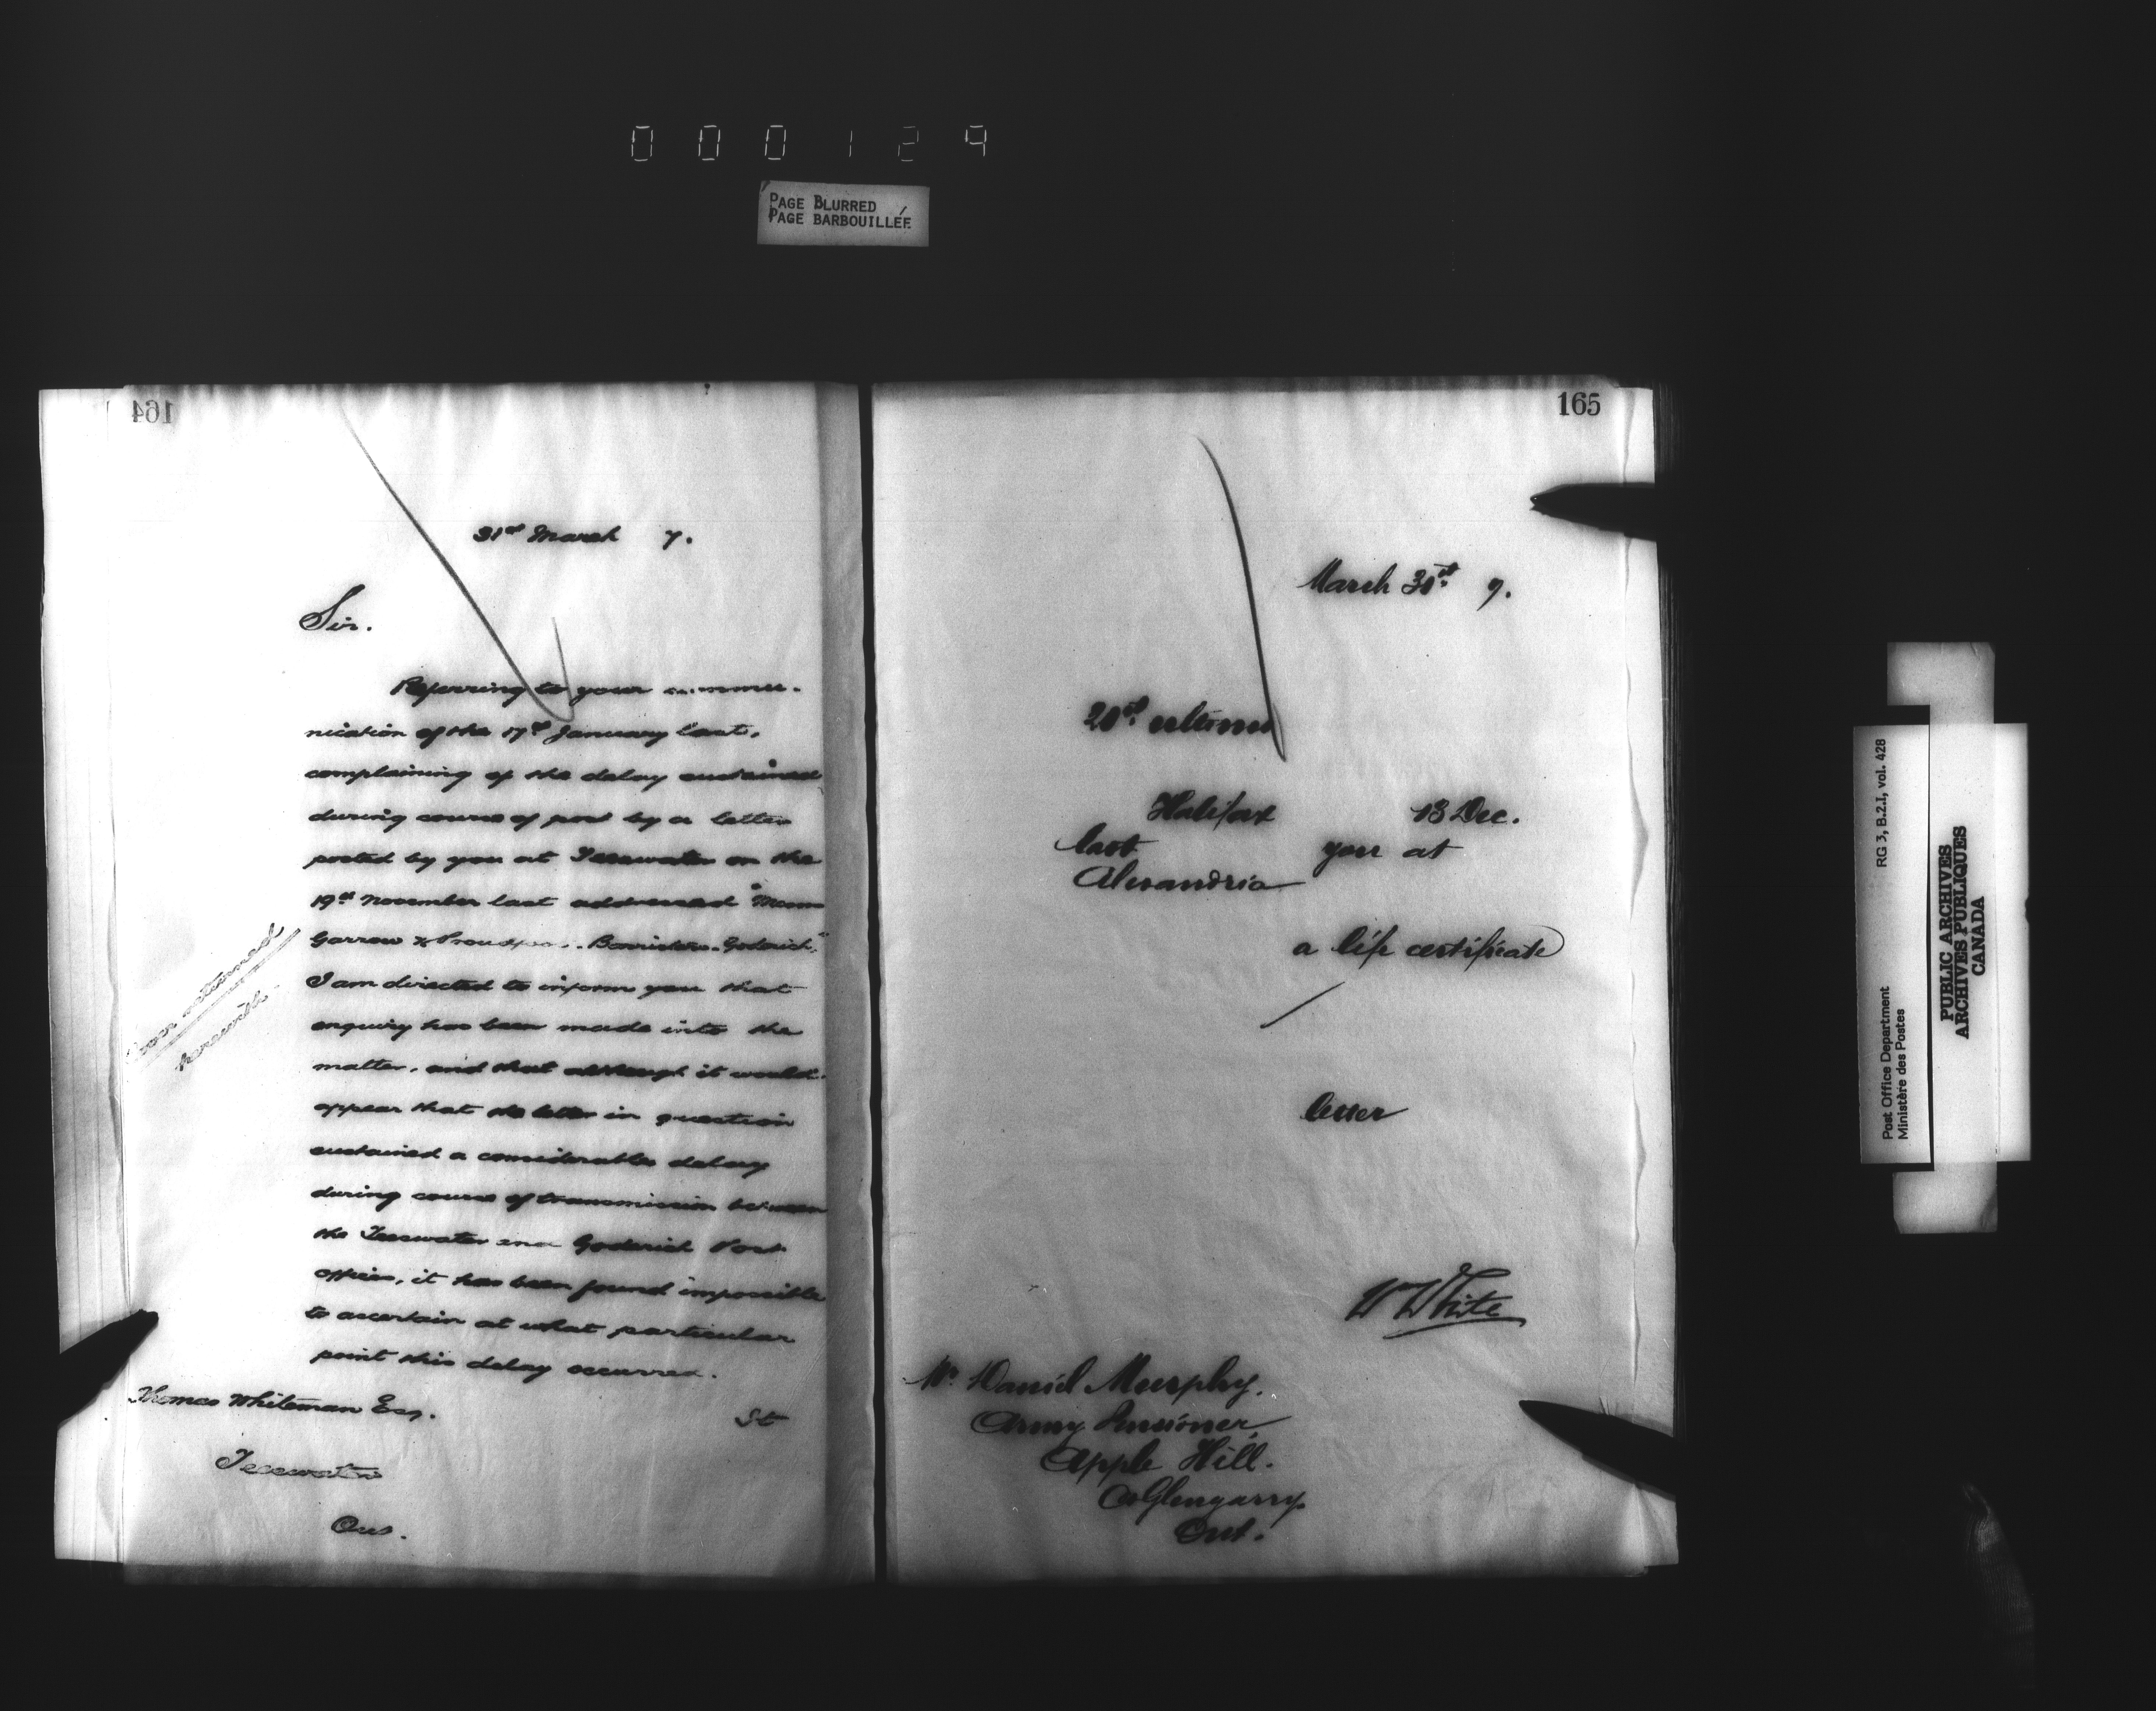 000129
PAGE BLURRED
PAGE BARBOUILLÉE
164
31st March 7.
Sir.
Referring to your commu-
nication of the 17th January last,
complaining of the delay sustained
during course of post by a letter
posted by you at Teeswater on the
19th November last addressed "Messrs
Garrow & Proudfoot. Barristers. Goderich,"
I am directed to inform you that
enquiry has been made into the
matter, and that although it would
appear that the letter in question
sustained a considerable delay
during course of transmission between
the Teeswater and Goderich Post
offices, it has been found impossible
to ascertain at what particular
point this delay occurred.
Cover returned
herewith.
Thomas Whiteman Esq.
St
Teeswater
Ont.
165
March 31st 7.
20th ultimo
Halifax 13 Dec.
last you at
Alexandria
a life certificate
letter
W White
Mr. Daniel Murphy.
Army Pensioner,
Apple Hill.
Co Glengarry
Ont.
RG 3, B.2.I, vol. 428
Post Office Department
Ministère des Postes
PUBLIC ARCHIVES
ARCHIVES PUBLIQUES
CANADA